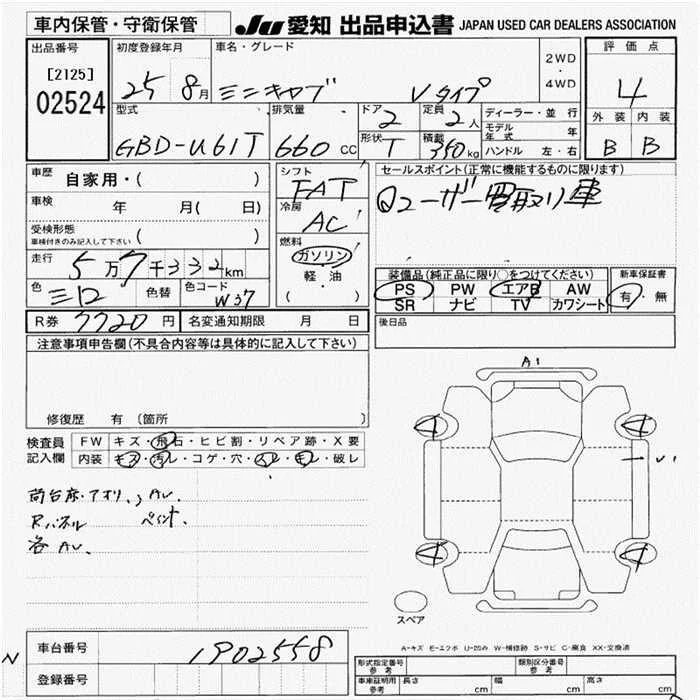 車内保管・守衛保管
JU 愛知 出品申込書 JAPAN USED CAR DEALERS ASSOCIATION
出品番号 初度登録年月 車名・グレード 2WD・4WD 評価点
[2125]
02524
25 8月 ミニキャブ Vタイプ 4
型式 排気量 ドア 定員 ディーラー・並行 外装 内装
GBD-U61T 660 CC 2 2人 モデル年式 年 B B
形状 T 積載 350kg ハンドル 左・右
車歴 自家用・( )
シフト FAT
セールスポイント(正常に機能するものに限ります)
車検 年 月( 日)
冷房 AC
ユーザー買取り車
受検形態 ( )
車検付きのみ記入して下さい
燃料 ガソリン・軽・油 ( )
走行 5万7千332km
装備品(純正品に限り○をつけてください) 新車保証書
色 色替 色コード W37
PS PW エアB AW 有・無
SR ナビ TV カワシート
R券 7720円 名変通知期限 月 日
後日品
注意事項申告欄(不具合内容等は具体的に記入して下さい)
A1
修復歴 有 〔箇所 〕
検査員記入欄 FW キズ・飛石・ヒビ割・リペア跡・X要
内装 キズ・汚レ・コゲ・穴・スレ・モレ・破レ
4 4
荷台床・アオリ、AU、
Rパネル ペイント、
各AU、
4 4
スペア
A-キズ E-エクボ U-凹み W-補修跡 S-サビ C-腐食 XX-交換済
N 車台番号 1902558
登録番号
形式指定番号 参考 類別区分番号 参考
車庫証明用 参考 長さ cm 幅 cm 高さ cm